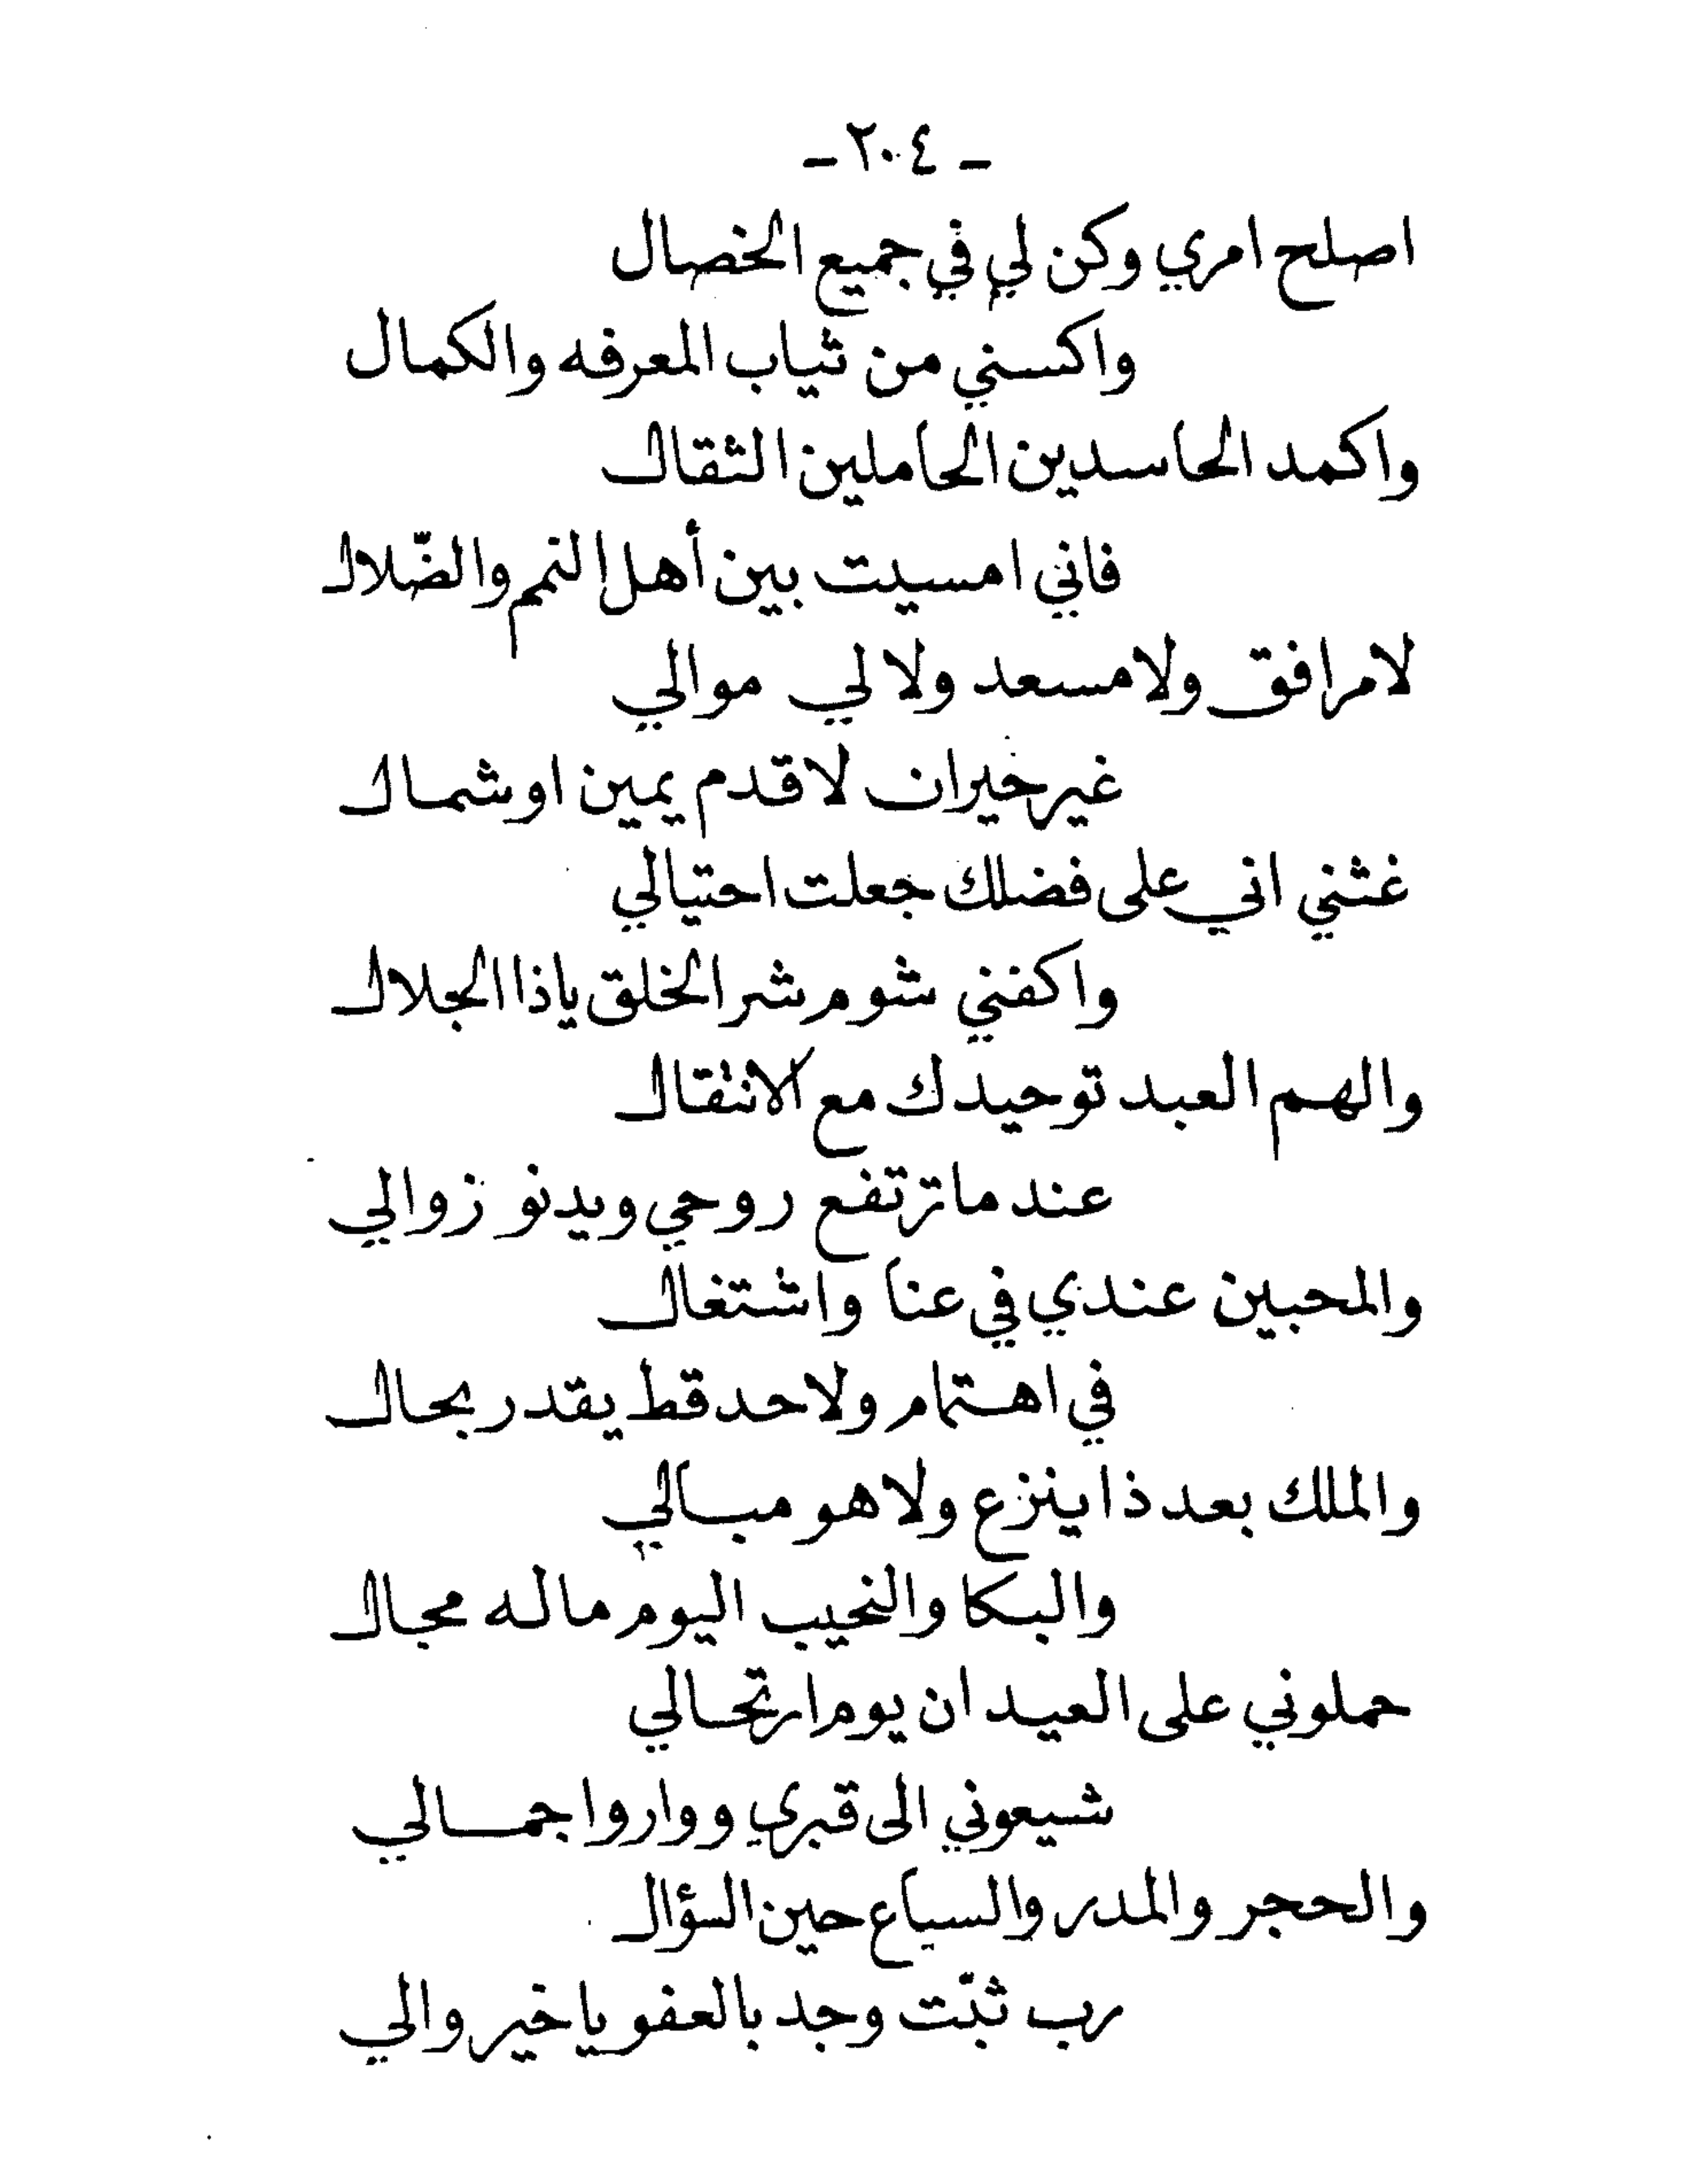 - ٢٠٤ -
اصلح امري وكن لي في جميع الخصال
واكسني من ثياب المعرفه والكمال
واكمد الحاسدين الحاملين الثقال
فاني امسيت بين أهل النمم والضّلال
لا مرافق ولا مسعد ولا لي موالي
غير خيران لا قدم يمين او شمال
غثني اني على فضلك جعلت احتيالي
واكفني شوم شر الخلق ياذا الجلال
والهم العبد توحيدك مع الانتقال
عند ما ترتفع روحي ويدنو زوالي
والمحبين عندي في عنا واشتغال
في اهتمام ولاحد قط يقدر بحال
والملك بعد ذا ينزع ولا هو مبالي
والبكا والنحيب اليوم ماله مجال
حملوني على العيدان يوم ارتحالي
شيعوني الى قبري وواروا جمالي
والحجر والمدر والسباع حين السؤال
رب ثبّت وجد بالعفو يا خير والي